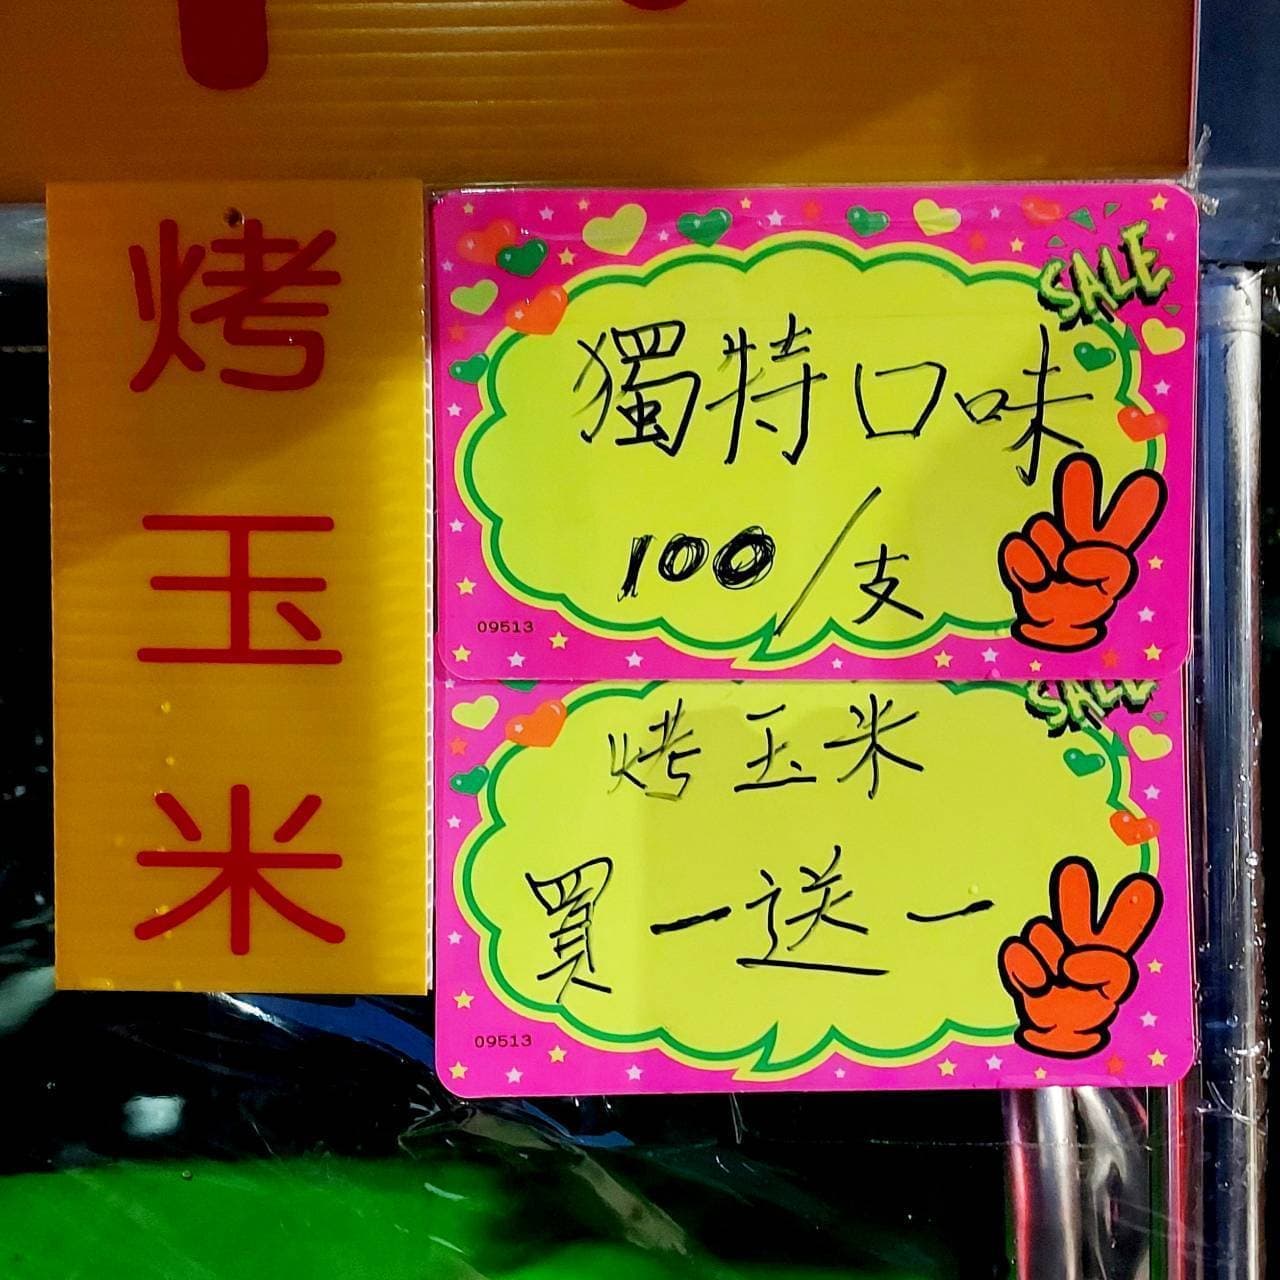 烤玉米
SALE
獨特口味
100/支
09513
SALE
烤玉米
買一送一
09513